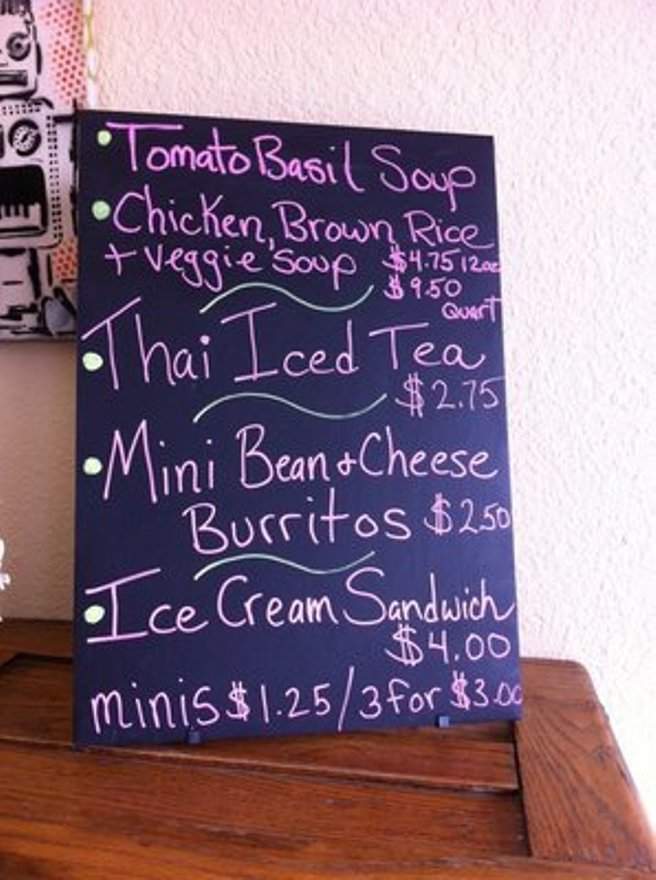 Tomato Basil Soup
Chicken, Brown Rice
+ Veggie Soup $4.75 12oz
$9.50
Quart
Thai Iced Tea
$2.75
Mini Bean + Cheese
Burritos $2.50
Ice Cream Sandwich
$4.00
minis $1.25/3 for $3.00